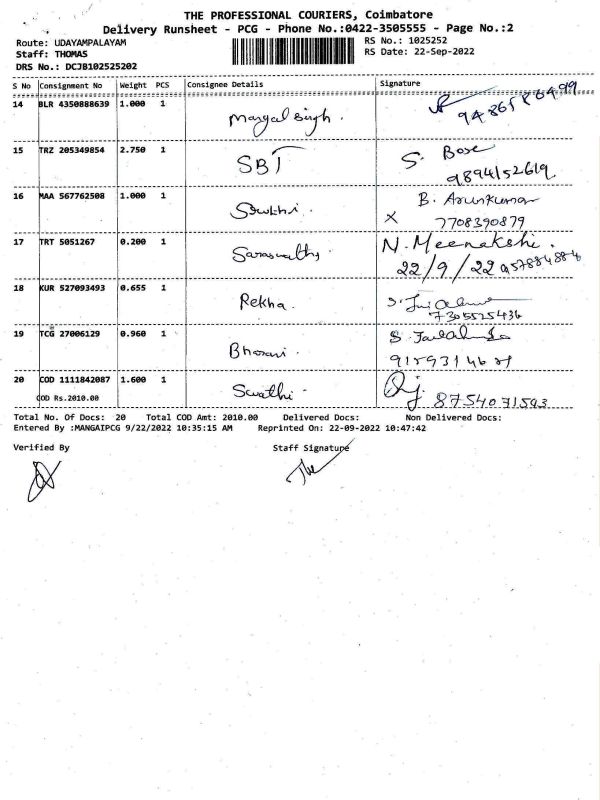 THE PROFESSIONAL COURIERS, Coimbatore
Delivery Runsheet - PCG - Phone No.:0422-3505555 - Page No.:2
Route: UDAYAMPALAYAM
RS No.: 1025252
Staff: THOMAS
RS Date: 22-Sep-2022
DRS No.: DCJB102525202
S No Consignment No Weight PCS Consignee Details Signature
14 BLR 4350888639 1.000 1 Mangal singh.
15 TRZ 205349854 2.750 1 SBI S. Bose
9894152619
16 MAA 567762508 1.000 1 B. Arunkumar
X 7708390879
17 TRT 5051267 0.200 1 Saraswathy N. Meenakshi.
22/9/22
18 KUR 527093493 0.655 1 Rekha. S.
7305525436
19 TCG 27006129 0.960 1 S.
20 COD 1111842087 1.600 1 Swathi 8754071593
COD Rs.2010.00
Total No. Of Docs: 20 Total COD Amt: 2010.00 Delivered Docs: Non Delivered Docs:
Entered By :MANGAIPCG 9/22/2022 10:35:15 AM Reprinted On: 22-09-2022 10:47:42
Verified By Staff Signature